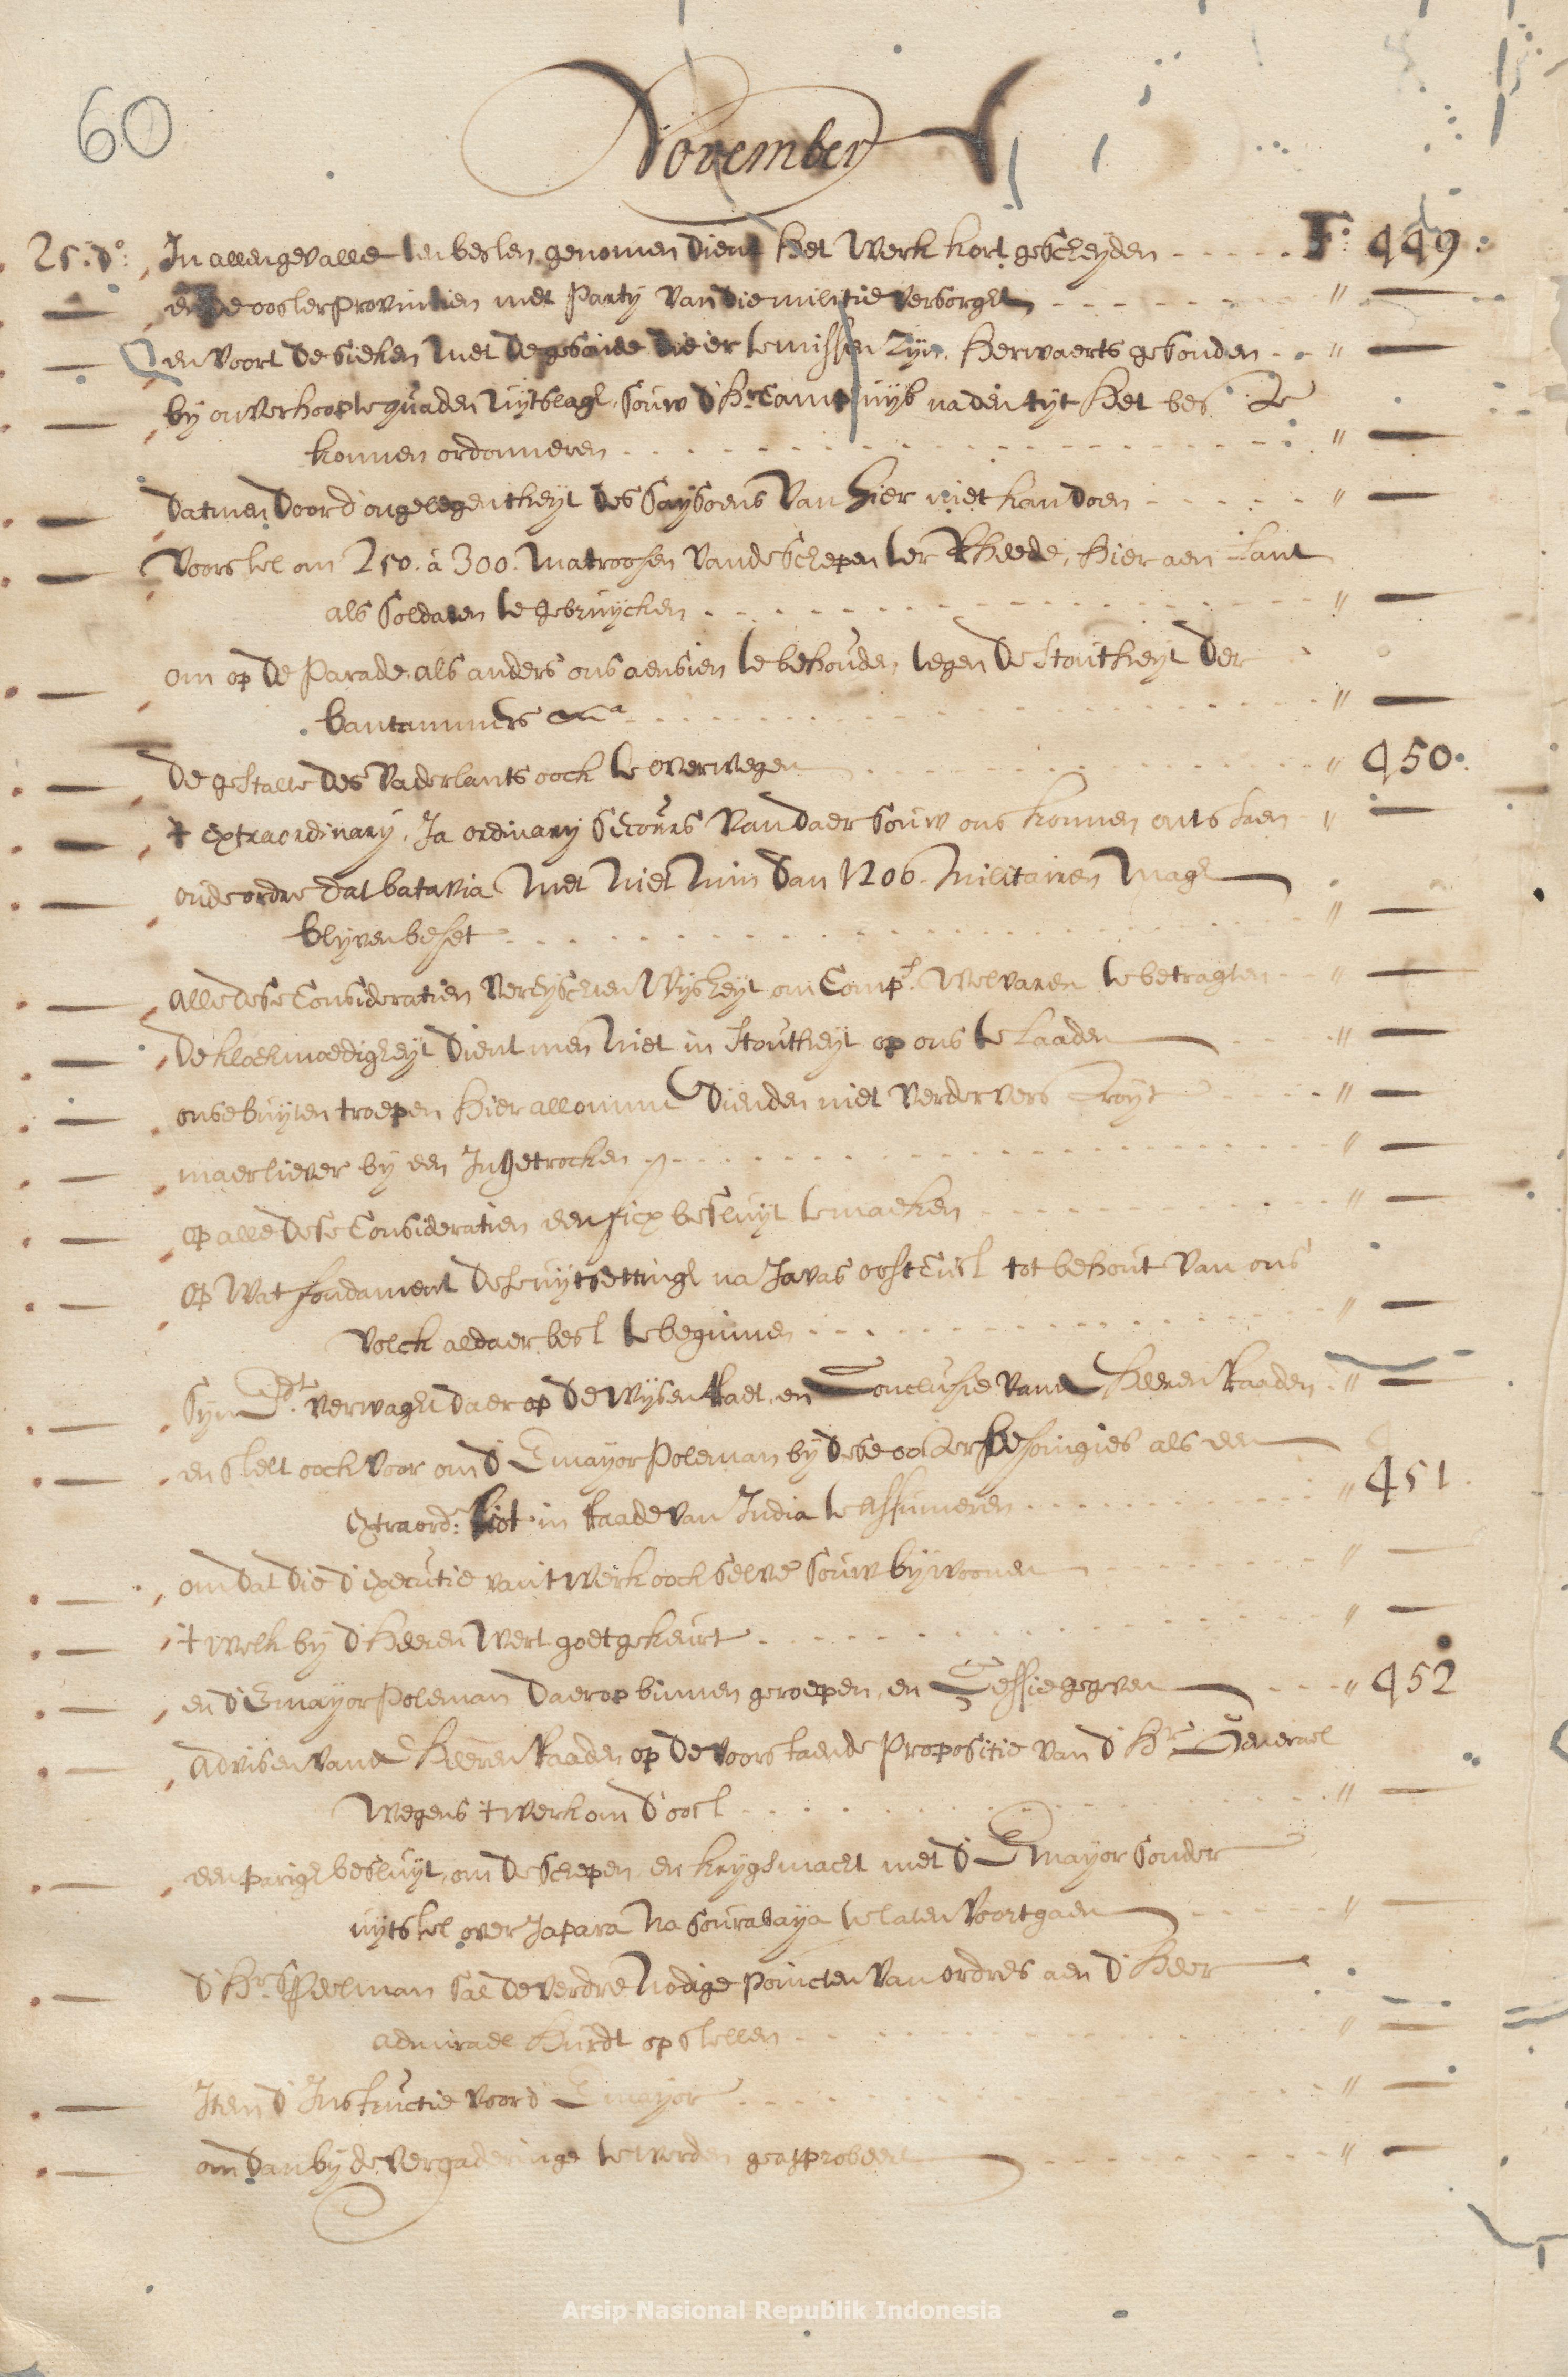 60
November
25. do: In allen gevalle ten besten genomen dient het werk kort gescheyden - - - - - Fo: 449:
de ooster provintien met party van die militie versorght - - - - - - - - "
en voort de sieken met de gesonde die er te missen zyn, herwaerts gesonden - - "
by onverhoopte quaden uytslagh, souw d'Hr. Camphuys na den tyt het best
konnen ordonneren - - - - - - - - "
datmen door d'ongelegentheyt des saysoens van hier niet kan doen - - - - - "
Voorstel om 250. à 300. matroosen van de schepen ter Rheede, hier aen Lant
als soldaten te gebruycken - - - - - - - - "
om op de Parade, als anders ons aensien te behouden, tegen de stoutheyt der
bantammers &a - - - - - - - - "
de gestalte des Vaderlants oock te overwegen - - - - - - - - " 450.
t extraordinary, Ja ordinary secours van daer souw ons konnen ontstaen - "
oude ordre dat batavia met niet min dan 1200. militairen magh
blyven beset - - - - - - - - "
alle dese Consideratien vereysschen wysheyt om Comps. welvaren te betragten - - "
de kloekmoedigheyt dient men niet in stoutheyt op ons te laaden - - - "
onse buyten troepen hier allomme dienden niet verder verstroyt - - - - "
maer liever by een Ingetrocken - - - - - - - - "
op alle dese Consideratien een fix besluyt te maeken - - - - - - - - "
op wat fondament dese uytsettingh na Javas oostcust tot behout van ons
volck aldaer best te beginnen - - - - - - - - "
Syn Edt. verwaght daer op de wysen Raet, en Conclusie vande Heeren Raaden. "
en stelt oock voor om d'E mayor Poleman by dese ooster besoingies als een
Extraord: Lidt in Raade van India te assumeren - - - - - - - - " 451.
om dat die d'executie van 't werk oock selve souw bywoonen - - - - - - "
't welk by d'Heeren wert goet gekeurt - - - - - - - - "
en d'E mayor Poleman daer op binnen geroepen, en Sessie gegeven - - - - " 452
Advisen vande Heeren Raaden op de voorstaende Propositie van d'Hr. Generael
wegens 't werk om d'oost - - - - - - - - "
een parigh besluyt, om de schepen en krygsmacht met d'E mayor sonder
uytstel over Japara na Sourabaya te laten voortgaen - - - - - "
d'Hr. Speelman sal de verdre nodige poincten van ordres aen d'Heer
admirael Hurdt op stellen - - - - - - - - "
Item d'Instructie voor d'E mayor - - - - - - - - "
om dan by de vergaderinge te werden geapprobeert - - - - - - - - "
Arsip Nasional Republik Indonesia